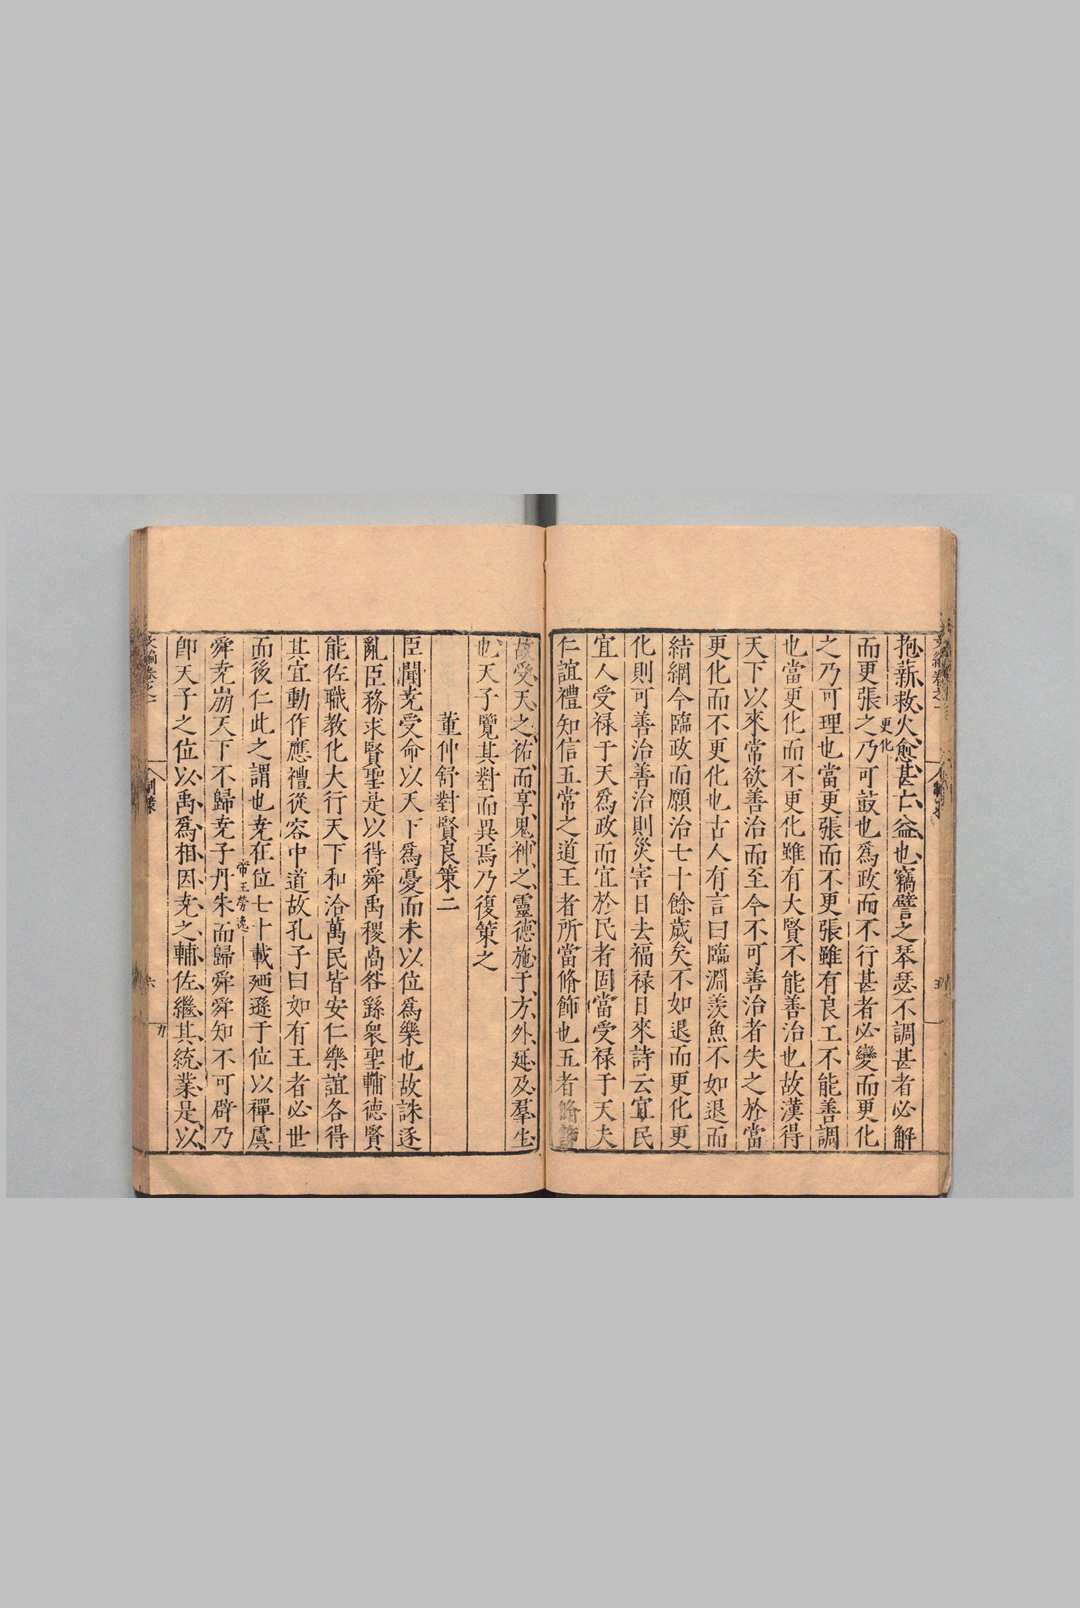 抱薪救火愈甚亡益也竊譬之琴瑟不調甚者必解
更化
而更張之乃可鼓也爲政而不行甚者必變而更化
之乃可理也當更張而不更張雖有良工不能善調
也當更化而不更化雖有大賢不能善治也故漢得
天下以來常欲善治而至今不可善治者失之於當
更化而不更化也古人有言曰臨淵羨魚不如退而
結網今臨政而願治七十餘歲矣不如退而更化更
化則可善治善治則災害日去福禄日來詩云宜民
宜人受禄于天爲政而宜於民者固當受禄于天夫
仁誼禮知信五常之道王者所當脩飾也五者脩飾
故受天之祐而享鬼神之靈德施于方外延及羣生
也天子覽其對而異焉乃復策之
董仲舒對賢良策二
臣聞堯受命以天下爲憂而未以位爲樂也故誅逐
亂臣務求賢聖是以得舜禹稷卨咎繇衆聖輔德賢
能佐職教化大行天下和洽萬民皆安仁樂誼各得
其宜動作應禮從容中道故孔子曰如有王者必世
而後仁此之謂也堯在位七十載廼遜于位以禪虞
帝王勞逸
舜堯崩天下不歸堯子丹朱而歸舜舜知不可辟乃
卽天子之位以禹爲相因堯之輔佐繼其統業是以
文編卷之一
制策
六